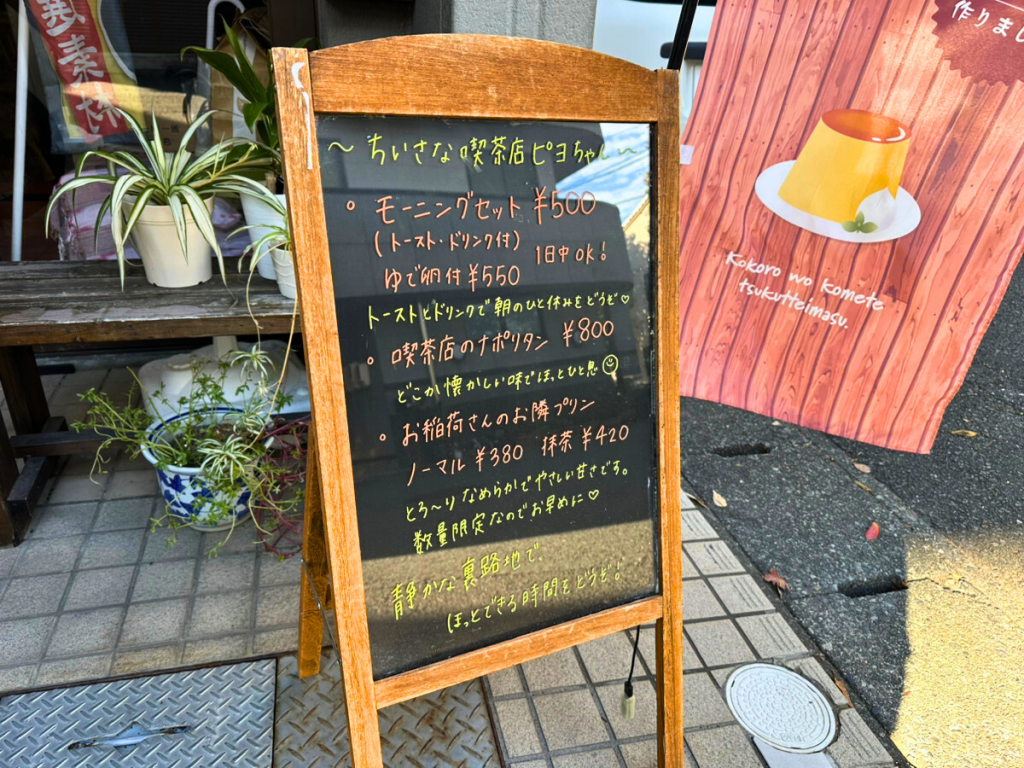 ～ちいさな喫茶店ピヨちゃん～
○ モーニングセット ¥500
(トースト・ドリンク付) 1日中OK!
ゆで卵付 ¥550
トーストとドリンクで朝のひと休みをどうぞ♡
○ 喫茶店のナポリタン ¥800
どこか懐かしい味でほっとひと息☺
○ お稲荷さんのお隣プリン
ノーマル ¥380 抹茶 ¥420
とろ～りなめらかでやさしい甘さです。
数量限定なのでお早めに♡
静かな裏路地で、
ほっとできる時間をどうぞ!
作りまし
Kokoro wo komete
tsukutteimasu.